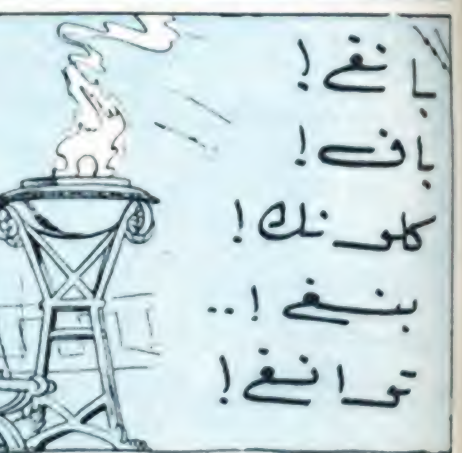 بانغ!
باف!
كلونك!
بنغ!..
ترانغ!